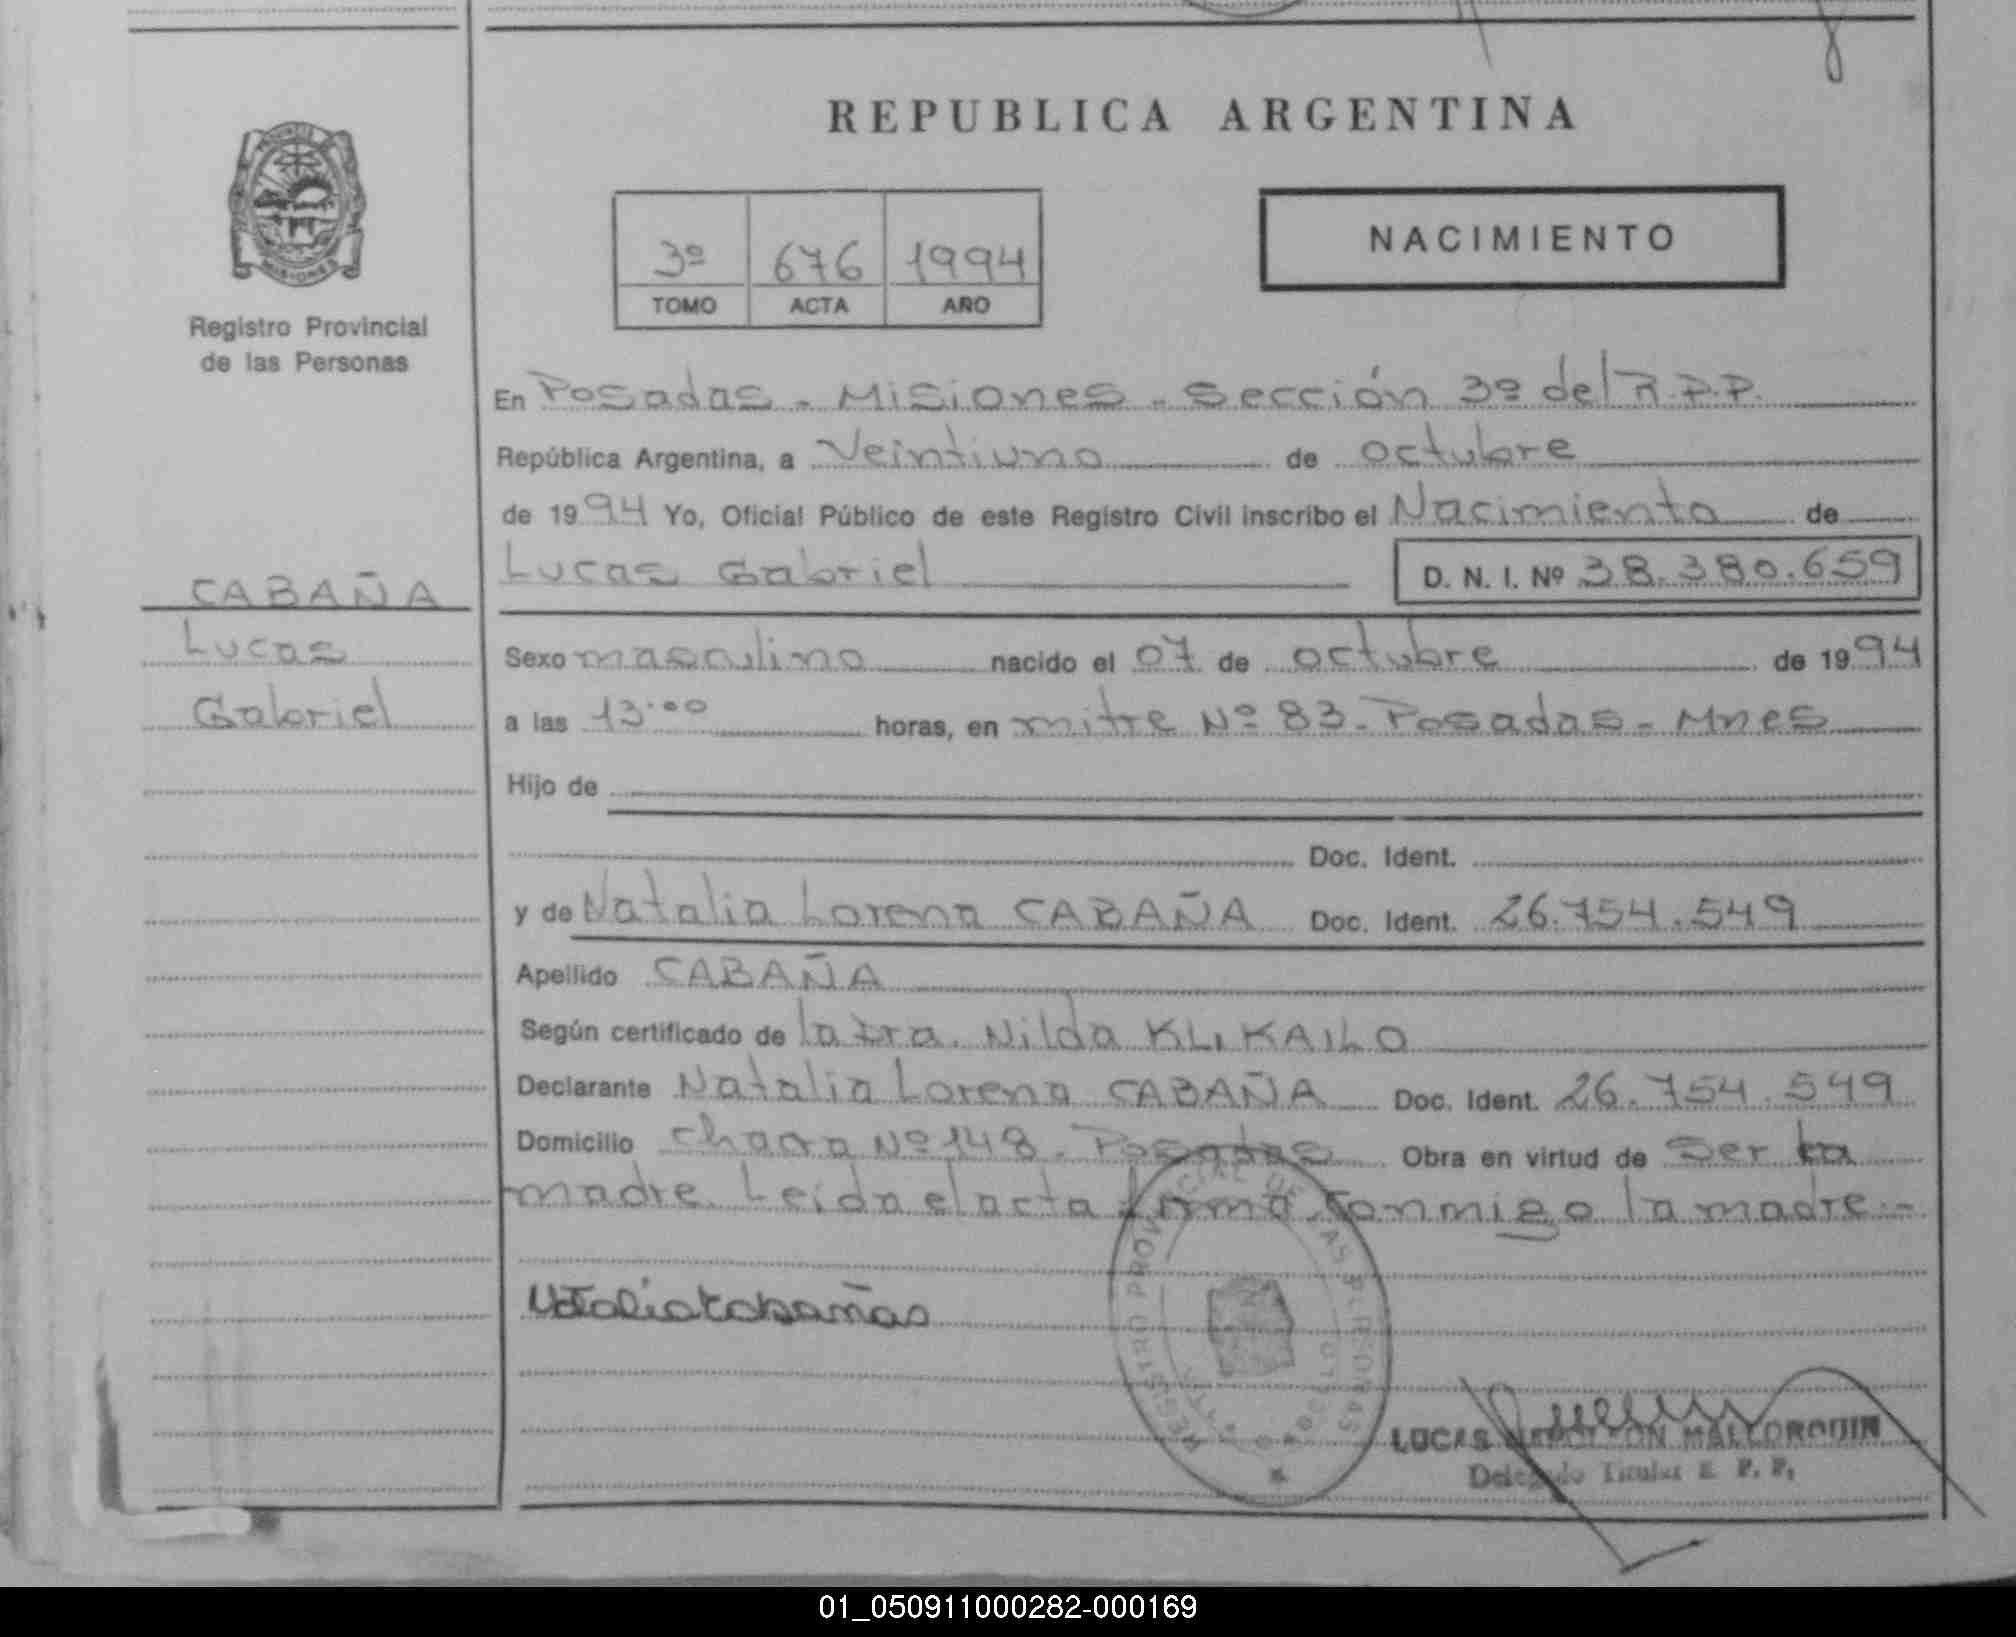 REPUBLICA ARGENTINA
MISIONES
Registro Provincial
de las Personas
3º 676 1994
TOMO ACTA AÑO
NACIMIENTO
En Posadas - Misiones - Sección 3º del R.P.P.
República Argentina, a Veintiuno de octubre
de 1994 Yo, Oficial Público de este Registro Civil inscribo el Nacimiento de
Lucas Gabriel D. N. I. Nº 38.380.659
CABAÑA
Lucas
Gabriel
Sexo masculino nacido el 07 de octubre de 1994
a las 13.00 horas, en mitre Nº 83 - Posadas - Mnes
Hijo de
Doc. Ident.
y de Natalia Lorena CABAÑA Doc. Ident. 26.754.549
Apellido CABAÑA
Según certificado de la Dra. Nilda KLIKAILO
Declarante Natalia Lorena CABAÑA Doc. Ident. 26.754.549
Domicilio chacra Nº 148 - Posadas Obra en virtud de ser la
madre. Leida el acta firma conmigo la madre.-
REGISTRO PROVINCIAL DE LAS PERSONAS
LUCAS MALLORQUIN
Delegado Titular R. P. P.
01_050911000282-000169